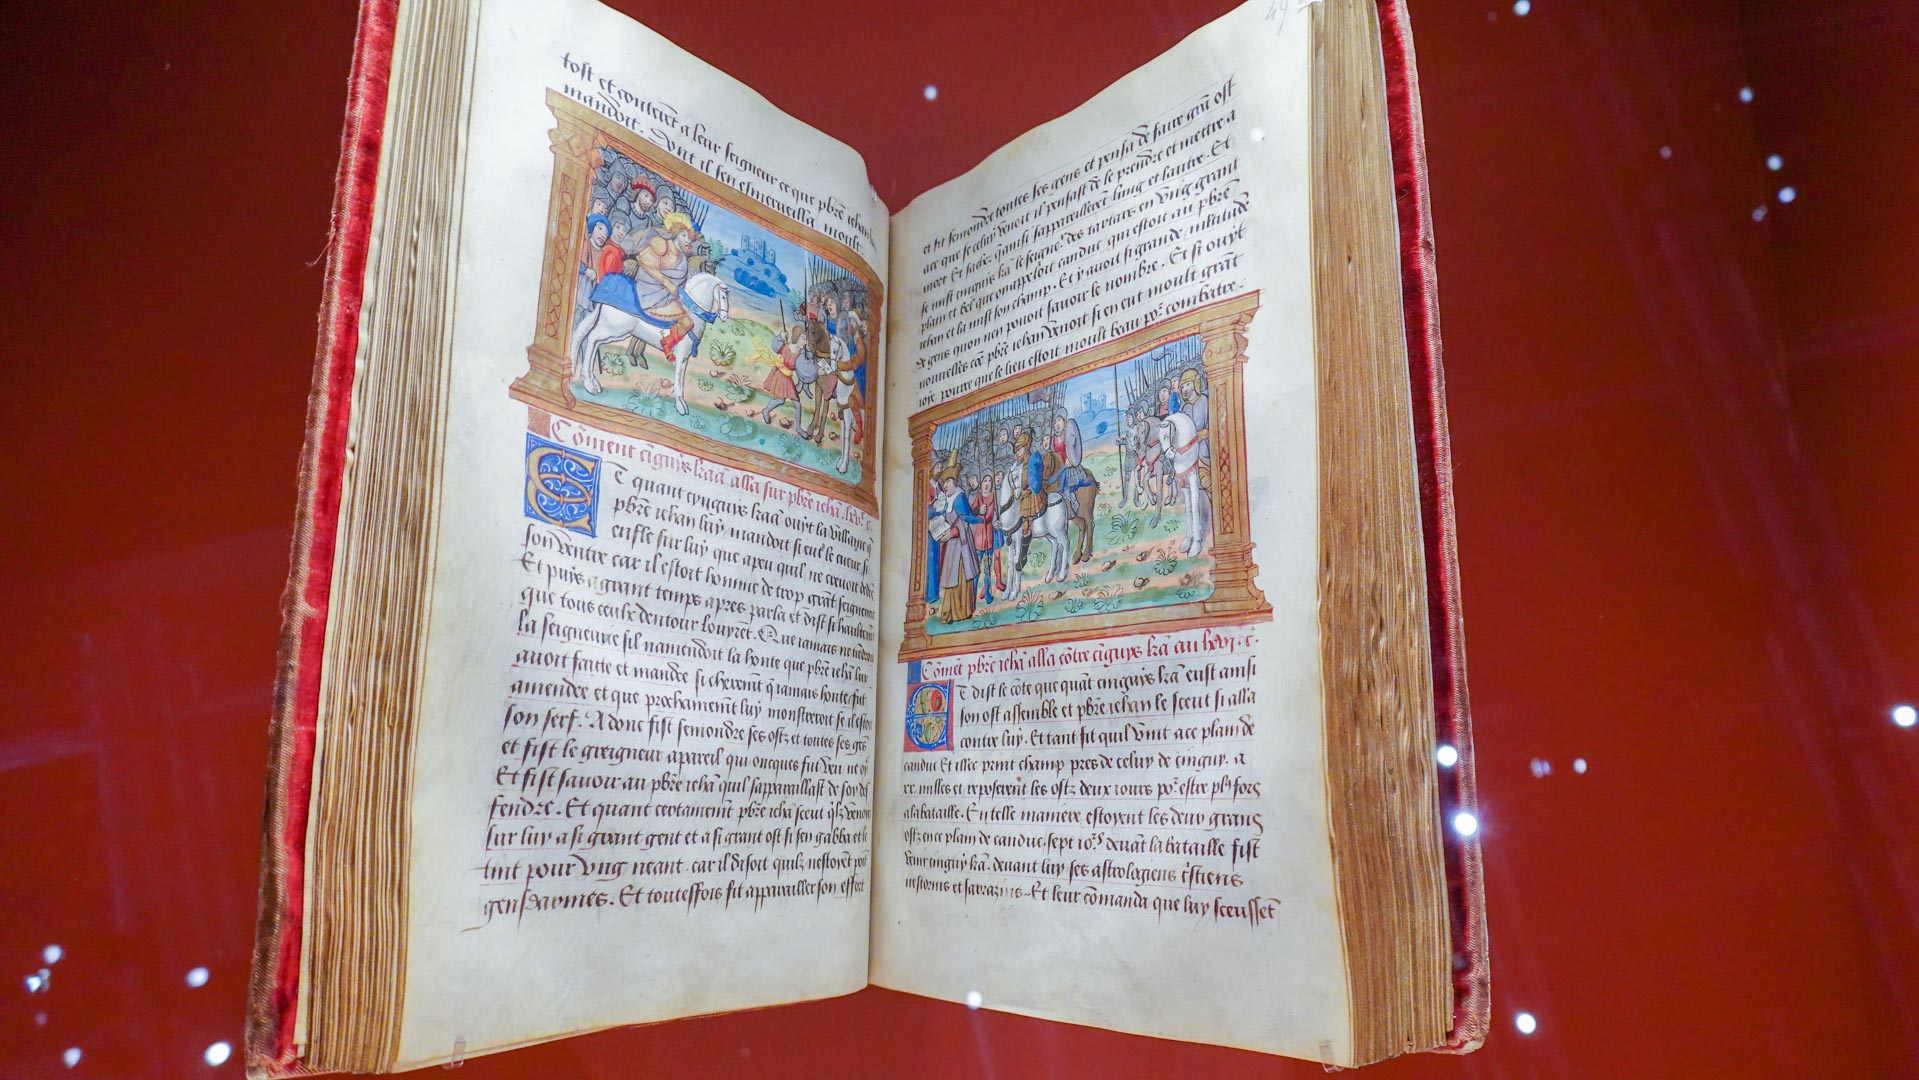 tost et conterēt a leur seigneur ce que pbrē iehan leur
mandoit. Dont il sen esmerveilla moult.
Cōment cīguys kaan alla sur pbrē iehā.
Et quant cynguys kaan ouyt la villayne q̄
pbrē iehan luy mandoit si eut le cueur si
enfle sur luy que apeu quil ne crevoit dedēs
son ventre car il estoit homme de trop grāt seigneurie
Et puys a grant temps apres parla et dist si haultemēt
que tous ceulx dentour louyrēt. Que iamais ne tiendroit
la seigneurie sil namendoit la honte que pbrē iehan luy
avoit faitte et mandee si cherement q̄ iamais honte fut
amendee et que prochainement luy monstreroit se il estoit
son serf. Adonc fist semondre ses ostz et toutes ses gēs
et fist le greigneur apareil qui oncques fut veu ne oy
Et fist savoir au pbrē iehā quil sapparaillast de soy def
fendre. Et quant certainemēt pbrē iehā sceut q̄lz venoit
sur luy a si grant gent et a si grant ost si sen gabba et le
tint pour vng neant. car il disoit quilz nestoyēt point
gensdarmes. Et toutesfois fit apparaillier son effort
49
et fit semondre toutes ses gens et pensa de faire grā ost
ace que se celuy venoit il pensast de le prendre et mettre a
mort Et sachez q̄ ainsi sapparaillerēt lung et lautre. Et
se mist cinguys kā le seignr̄ des tartars en vng grant
plain et bel que on appeloit canduc qui estoit au pbrē
iehan et la mist son champ. Et y avoit si grande multitude
de gens quon nen povoit savoir le nombre. Et si ouyt
nouvelles cōe pbrē iehan venoit si en eut moult grāt
ioye pource que le lieu estoit moult beau pōr combatre.
Cōmēt pbrē iehā alla cōtre cīguys kā au
Et dist le cōte que quāt cinguys kā eust ainsi
son ost assemble et pbrē iehan le sceut si alla
contre luy. Et tant fit quil vint ace plain de
canduc Et illec print champ pres de celuy de cinguy. a
xx. milles et reposerēt les ostz deux iours pōr estre pl9 fors
a la bataille. En telle maniere estoyent les deux grans
ostz ence plain de canduc. sept iors devāt la bataille fist
venir cinguy kā. devant luy ses astrologiens cr̄stiens
nestorins et sarrazins. Et leur cōmanda que luy sceussēt